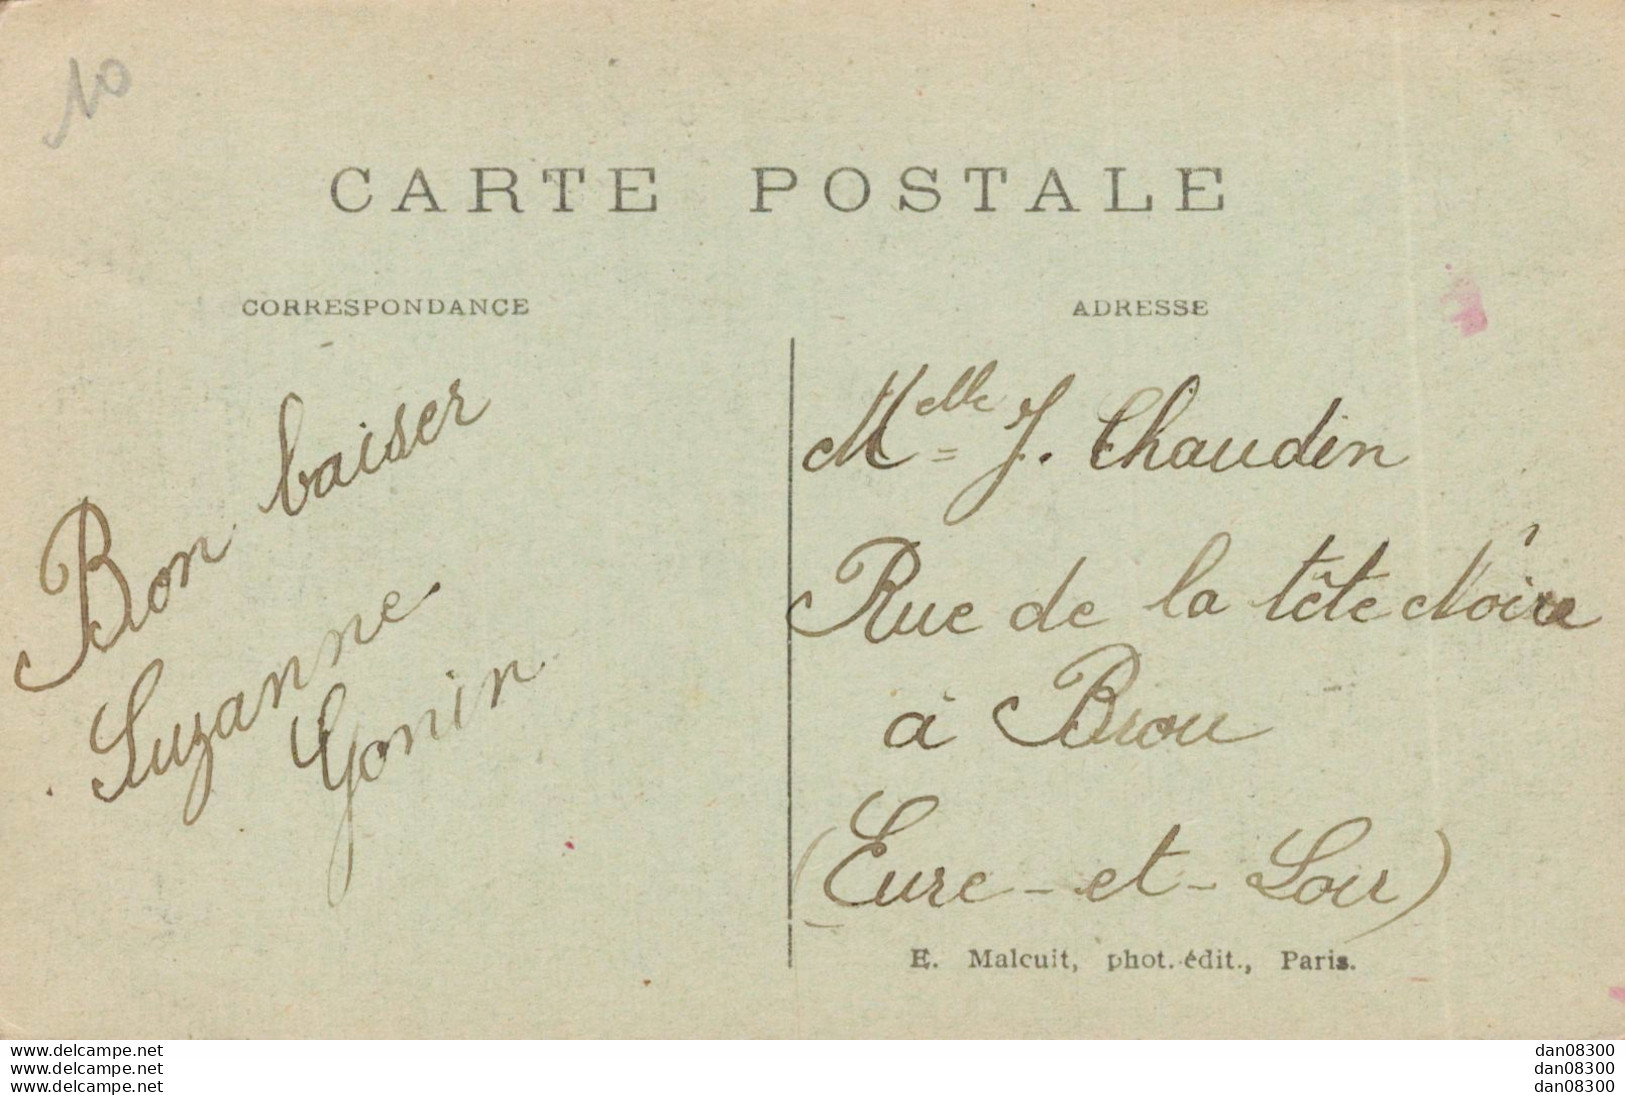 10
CARTE POSTALE
CORRESPONDANCE
ADRESSE
Bon baiser
Suzanne
Gonin
Melle J. Chaudin
Rue de la tête Noire
à Brou
(Eure-et-Loir)
E. Malcuit, phot. édit., Paris.
www.delcampe.net
www.delcampe.net
www.delcampe.net
dan08300
dan08300
dan08300